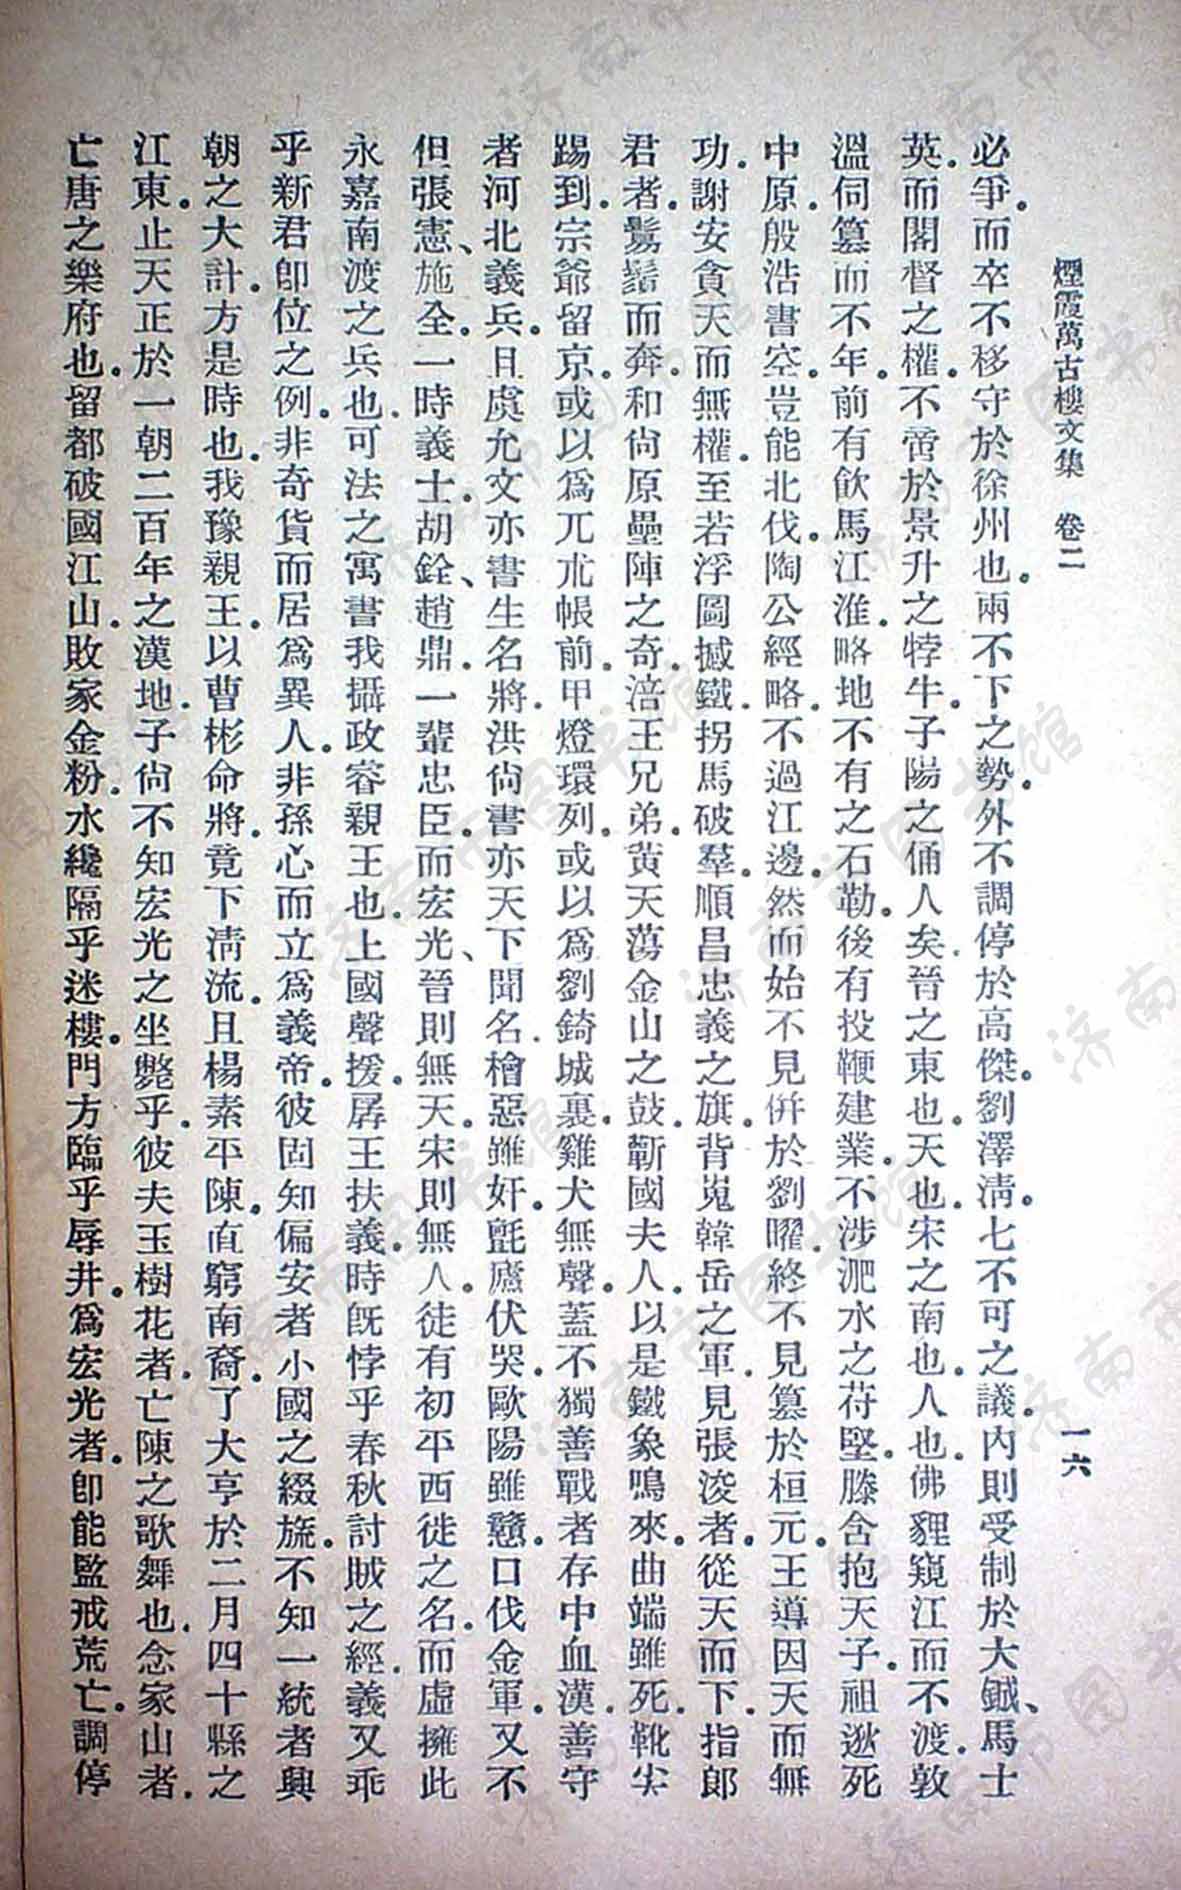 煙霞萬古樓文集　卷二　一六
必爭。而卒不移守於徐州也。兩不下之勢。外不調停於高傑。劉澤淸。七不可之議。內則受制於大鋮、馬士
英。而閣督之權。不啻於景升之㹀牛。子陽之俑人矣。晉之東也。天也。宋之南也。人也。佛貍窺江而不渡。敦
溫伺篡而不年。前有飮馬江淮。略地不有之石勒。後有投鞭建業。不涉淝水之苻堅。滕含抱天子。祖逖死
中原。殷浩書空。豈能北伐。陶公經略。不過江邊。然而始不見併於劉曜。終不見篡於桓元。王導因天而無
功。謝安貪天而無權。至若浮圖撼鐵。拐馬破羣。順昌忠義之旗。背嵬韓岳之軍。見張浚者。從天而下。指郎
君者。鬍髥而奔。和尙原壘陣之奇。涪王兄弟。黃天蕩金山之鼓。蘄國夫人。以是鐵象鳴來。曲端雖死。靴尖
踢到。宗爺留京。或以爲兀朮帳前。甲燈環列。或以爲劉錡城裏。雞犬無聲。蓋不獨善戰者存中血漢。善守
者河北義兵。且虞允文亦書生名將。洪尙書亦天下聞名。檜惡雖奸。氈廬伏哭。歐陽雖戇。口伐金軍。又不
但張憲、施全。一時義士。胡銓、趙鼎。一輩忠臣。而宏光、晉則無天。宋則無人。徒有初平西徙之名。而虛擁此
永嘉南渡之兵也。可法之寓書我攝政睿親王也。上國聲援。孱王扶義。時旣悖乎春秋討賊之經。義又乖
乎新君卽位之例。非奇貨而居爲異人。非孫心而立爲義帝。彼固知偏安者小國之綴旒。不知一統者興
朝之大計。方是時也。我豫親王。以曹彬命將。竟下淸流。且楊素平陳。直窮南裔。了大亨於二月四十縣之
江東。止天正於一朝二百年之漢地。子尙不知宏光之坐斃乎。彼夫玉樹花者。亡陳之歌舞也。念家山者。
亡唐之樂府也。留都破國江山。敗家金粉。水纔隔乎迷樓。門方臨乎辱井。爲宏光者。卽能監戒荒亡。調停